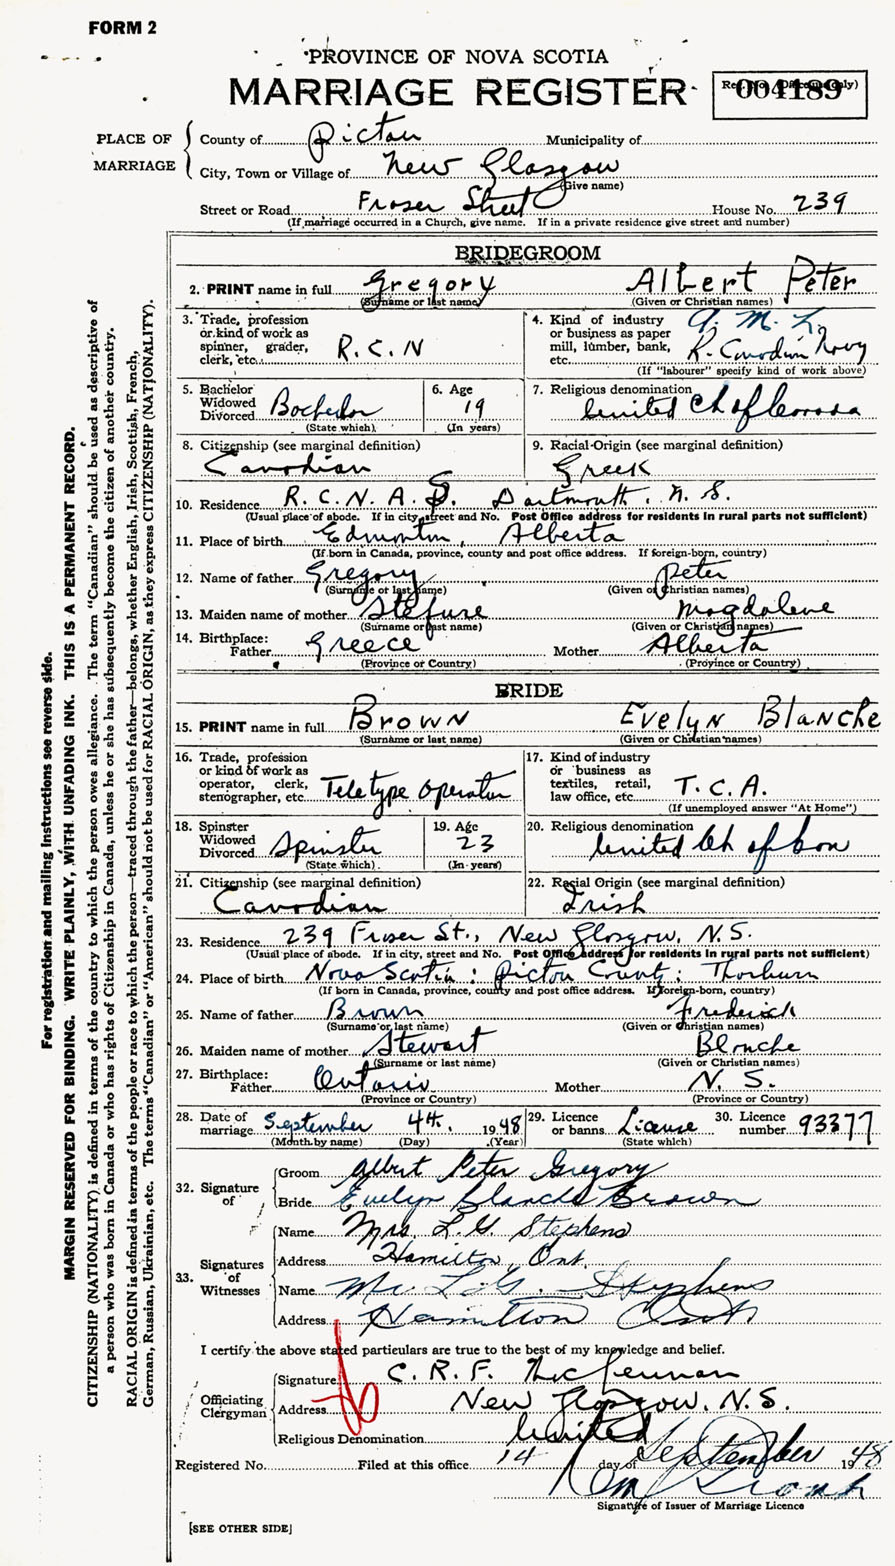 FORM 2
PROVINCE OF NOVA SCOTIA
MARRIAGE REGISTER
Reg. No. (Office use only)
004189
PLACE OF MARRIAGE
County of Pictou Municipality of
City, Town or Village of New Glasgow
(Give name)
Street or Road Fraser Street House No. 239
(If marriage occurred in a Church, give name. If in a private residence give street and number)
BRIDEGROOM
2. PRINT name in full Gregory Albert Peter
(Surname or last name) (Given or Christian names)
3. Trade, profession or kind of work as spinner, grader, clerk, etc. R.C.N
4. Kind of industry or business as paper mill, lumber, bank, etc. R. Canadian Navy
(If "labourer" specify kind of work above)
5. Bachelor Widowed Divorced Bachelor
(State which)
6. Age 19
(In years)
7. Religious denomination United Ch of Canada
8. Citizenship (see marginal definition)
Canadian
9. Racial Origin (see marginal definition)
Greek
10. Residence R.C.N.A.S. Dartmouth. N.S.
(Usual place of abode. If in city, street and No. Post Office address for residents in rural parts not sufficient)
11. Place of birth Edmonton, Alberta
(If born in Canada, province, county and post office address. If foreign-born, country)
12. Name of father Gregory Peter
(Surname or last name) (Given or Christian names)
13. Maiden name of mother Stefure Magdalene
(Surname or last name) (Given or Christian names)
14. Birthplace:
Father Greece Mother Alberta
(Province or Country) (Province or Country)
BRIDE
15. PRINT name in full Brown Evelyn Blanche
(Surname or last name) (Given or Christian names)
16. Trade, profession or kind of work as operator, clerk, stenographer, etc. Teletype Operator
17. Kind of industry or business as textiles, retail, law office, etc. T.C.A.
(If unemployed answer "At Home")
18. Spinster Widowed Divorced Spinster
(State which)
19. Age 23
(In years)
20. Religious denomination United Ch of Can
21. Citizenship (see marginal definition)
Canadian
22. Racial Origin (see marginal definition)
Irish
23. Residence 239 Fraser St., New Glasgow, N.S.
(Usual place of abode. If in city, street and No. Post Office address for residents in rural parts not sufficient)
24. Place of birth Nova Scotia: Pictou County: Thorburn
(If born in Canada, province, county and post office address. If foreign-born, country)
25. Name of father Brown Frederick
(Surname or last name) (Given or Christian names)
26. Maiden name of mother Stewart Blanche
(Surname or last name) (Given or Christian names)
27. Birthplace:
Father Ontario Mother N.S.
(Province or Country) (Province or Country)
28. Date of marriage September 4th. 1948
(Month by name) (Day) (Year)
29. Licence or banns License
(State which)
30. Licence number 93377
32. Signature of
Groom Albert Peter Gregory
Bride Evelyn Blanche Brown
33. Signatures of Witnesses
Name Mrs. L.G. Stephens
Address Hamilton, Ont.
Name Mr L.G. Stephens
Address Hamilton Ont.
I certify the above stated particulars are true to the best of my knowledge and belief.
Officiating Clergyman
Signature C.R.F. MacLennan
Address New Glasgow, N.S.
Religious Denomination United
Registered No. Filed at this office 14 day of September 1948
Signature of Issuer of Marriage Licence
[SEE OTHER SIDE]
For registration and mailing instructions see reverse side.
MARGIN RESERVED FOR BINDING. WRITE PLAINLY, WITH UNFADING INK. THIS IS A PERMANENT RECORD.
CITIZENSHIP (NATIONALITY) is defined in terms of the country to which the person owes allegiance. The term "Canadian" should be used as descriptive of
a person who was born in Canada or who has rights of Citizenship in Canada, unless he or she has subsequently become the citizen of another country.
RACIAL ORIGIN is defined in terms of the people or race to which the person—traced through the father—belongs, whether English, Irish, Scottish, French,
German, Russian, Ukrainian, etc. The terms "Canadian" or "American" should not be used for RACIAL ORIGIN, as they express CITIZENSHIP (NATIONALITY).